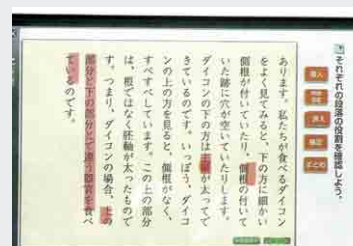 それぞれの段落の役割を確認しよう。
導入
問い
答え
補足
まとめ
あります。私たちが食べるダイコン
をよく見てみると、下の方に細かい
側根が付いていたり、側根の付いて
いた跡に穴が空いていたりします。
ダイコンの下の方は主根が太ってで
きているのです。いっぽう、ダイコ
ンの上の方を見ると、側根がなく、
すべすべしています。この上の部分
は、根ではなく胚軸が太ったもので
す。つまり、ダイコンの場合、上の
部分と下の部分とで違う器官を食べ
ているのです。